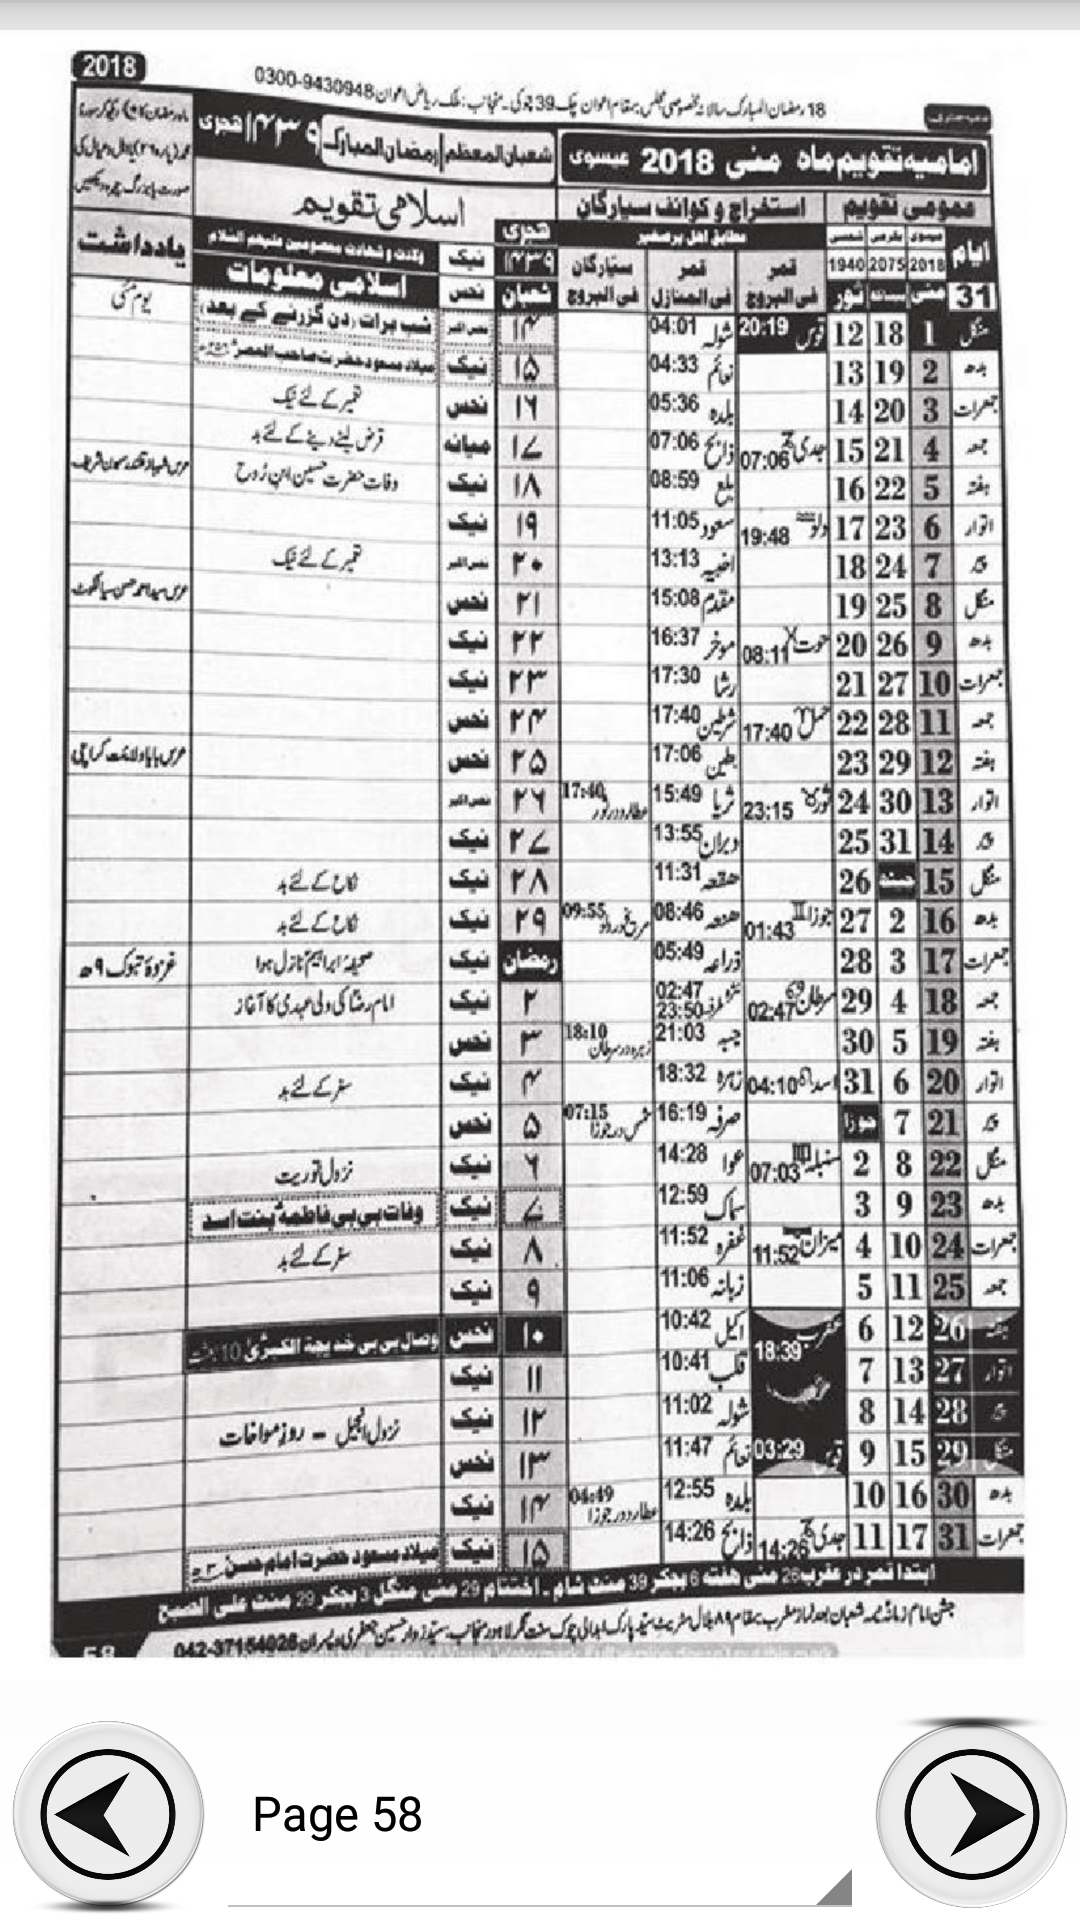 2018
18 رمضان المبارک سالانہ خصوصی مجلس بمقام اعوان چک 39 چوکی۔ منجانب: ملک ریاض اعوان 0300-9430948
امامیہ تقویم ماہ مئی 2018 عیسوی
شعبان المعظم رمضان المبارک ۱۴۳۹ ہجری
عمومی تقویم استخراج و کوائف سیارگان اسلامی تقویم یادداشت
مطابق اہل برصغیر
ولادت و شہادت معصومین علیہم السلام
ایام عیسوی بکرمی شمسی قمر قمر سیارگان ہجری نیک اسلامی معلومات
2018 2075 1940 فی البروج فی المنازل فی البروج ۱۴۳۹ نحس
31 مئی ثور شعبان
منگل 1 18 12 قوس 20:19 شولہ 04:01 ۱۴ نحس اکبر شب برات (دن گزرنے کے بعد) یوم مئی
بدھ 2 19 13 نعائم 04:33 ۱۵ نیک میلاد مسعود حضرت صاحب العصر
جمعرات 3 20 14 بلدہ 05:36 ۱۶ نحس تعمیر کے لئے نیک
جمعہ 4 21 15 جدی 07:06 ذابح 07:06 ۱۷ میانہ قرض لینے دینے کے لئے بد
ہفتہ 5 22 16 بلع 08:59 ۱۸ نیک وفات حضرت حسین ابن روح
اتوار 6 23 17 دلو 19:48 سعود 11:05 ۱۹ نیک
پیر 7 24 18 اخبیہ 13:13 ۲۰ نحس اکبر تعمیر کے لئے نیک
منگل 8 25 19 مقدم 15:08 ۲۱ نحس
بدھ 9 26 20 حوت 08:11 موخر 16:37 ۲۲ نیک
جمعرات 10 27 21 رشا 17:30 ۲۳ نیک
جمعہ 11 28 22 حمل 17:40 شرطین 17:40 ۲۴ نحس
ہفتہ 12 29 23 بطین 17:06 ۲۵ نحس عرس بابا ولائت کراچی
اتوار 13 30 24 ثور 23:15 ثریا 15:49 عطارد در ثور 17:40 ۲۶ نحس اکبر
پیر 14 31 25 دبران 13:55 ۲۷ نیک
منگل 15 26 ہقعہ 11:31 ۲۸ نیک نکاح کے لئے بد
بدھ 16 2 27 جوزا 01:43 ہنعہ 08:46 09:55 ۲۹ نیک نکاح کے لئے بد
جمعرات 17 3 28 ذراعہ 05:49 رمضان نیک صحیفہ ابراہیم نازل ہوا غزوۂ تبوک ۹ھ
جمعہ 18 4 29 سرطان 02:47 02:47 23:50 ۲ نیک امام رضا کی ولی عہدی کا آغاز
ہفتہ 19 5 30 جبہ 21:03 زہرہ در سرطان 18:10 ۳ نحس
اتوار 20 6 31 اسد 04:10 زہرہ 18:32 ۴ نیک سفر کے لئے بد
پیر 21 7 جوزا صرفہ 16:19 شمس در جوزا 07:15 ۵ نحس
منگل 22 8 2 سنبلہ 07:03 عوا 14:28 ۶ نیک نزول توریت
بدھ 23 9 3 سماک 12:59 ۷ نیک وفات بی بی فاطمہ بنت اسد
جمعرات 24 10 4 میزان 11:52 غفرہ 11:52 ۸ نیک سفر کے لئے بد
جمعہ 25 11 5 زبانہ 11:06 ۹ نیک
ہفتہ 26 12 6 عقرب 18:39 اکیل 10:42 ۱۰ نحس وصال بی بی خدیجۃ الکبریٰ 10 بعثت
اتوار 27 13 7 قلب 10:41 ۱۱ نیک
پیر 28 14 8 شولہ 11:02 ۱۲ نیک نزول انجیل – روز مواخات
منگل 29 15 9 قوس 03:29 نعائم 11:47 ۱۳ نحس
بدھ 30 16 10 بلدہ 12:55 عطارد در جوزا 04:49 ۱۴ نیک
جمعرات 31 17 11 جدی 14:26 ذابح 14:26 ۱۵ نیک میلاد مسعود حضرت امام حسن
ابتدا قمر در عقرب 26 مئی ہفتہ 6 بجکر 39 منٹ شام۔ اختتام 29 مئی منگل 3 بجکر 29 منٹ علی الصبح
042-37154026
58
Page 58